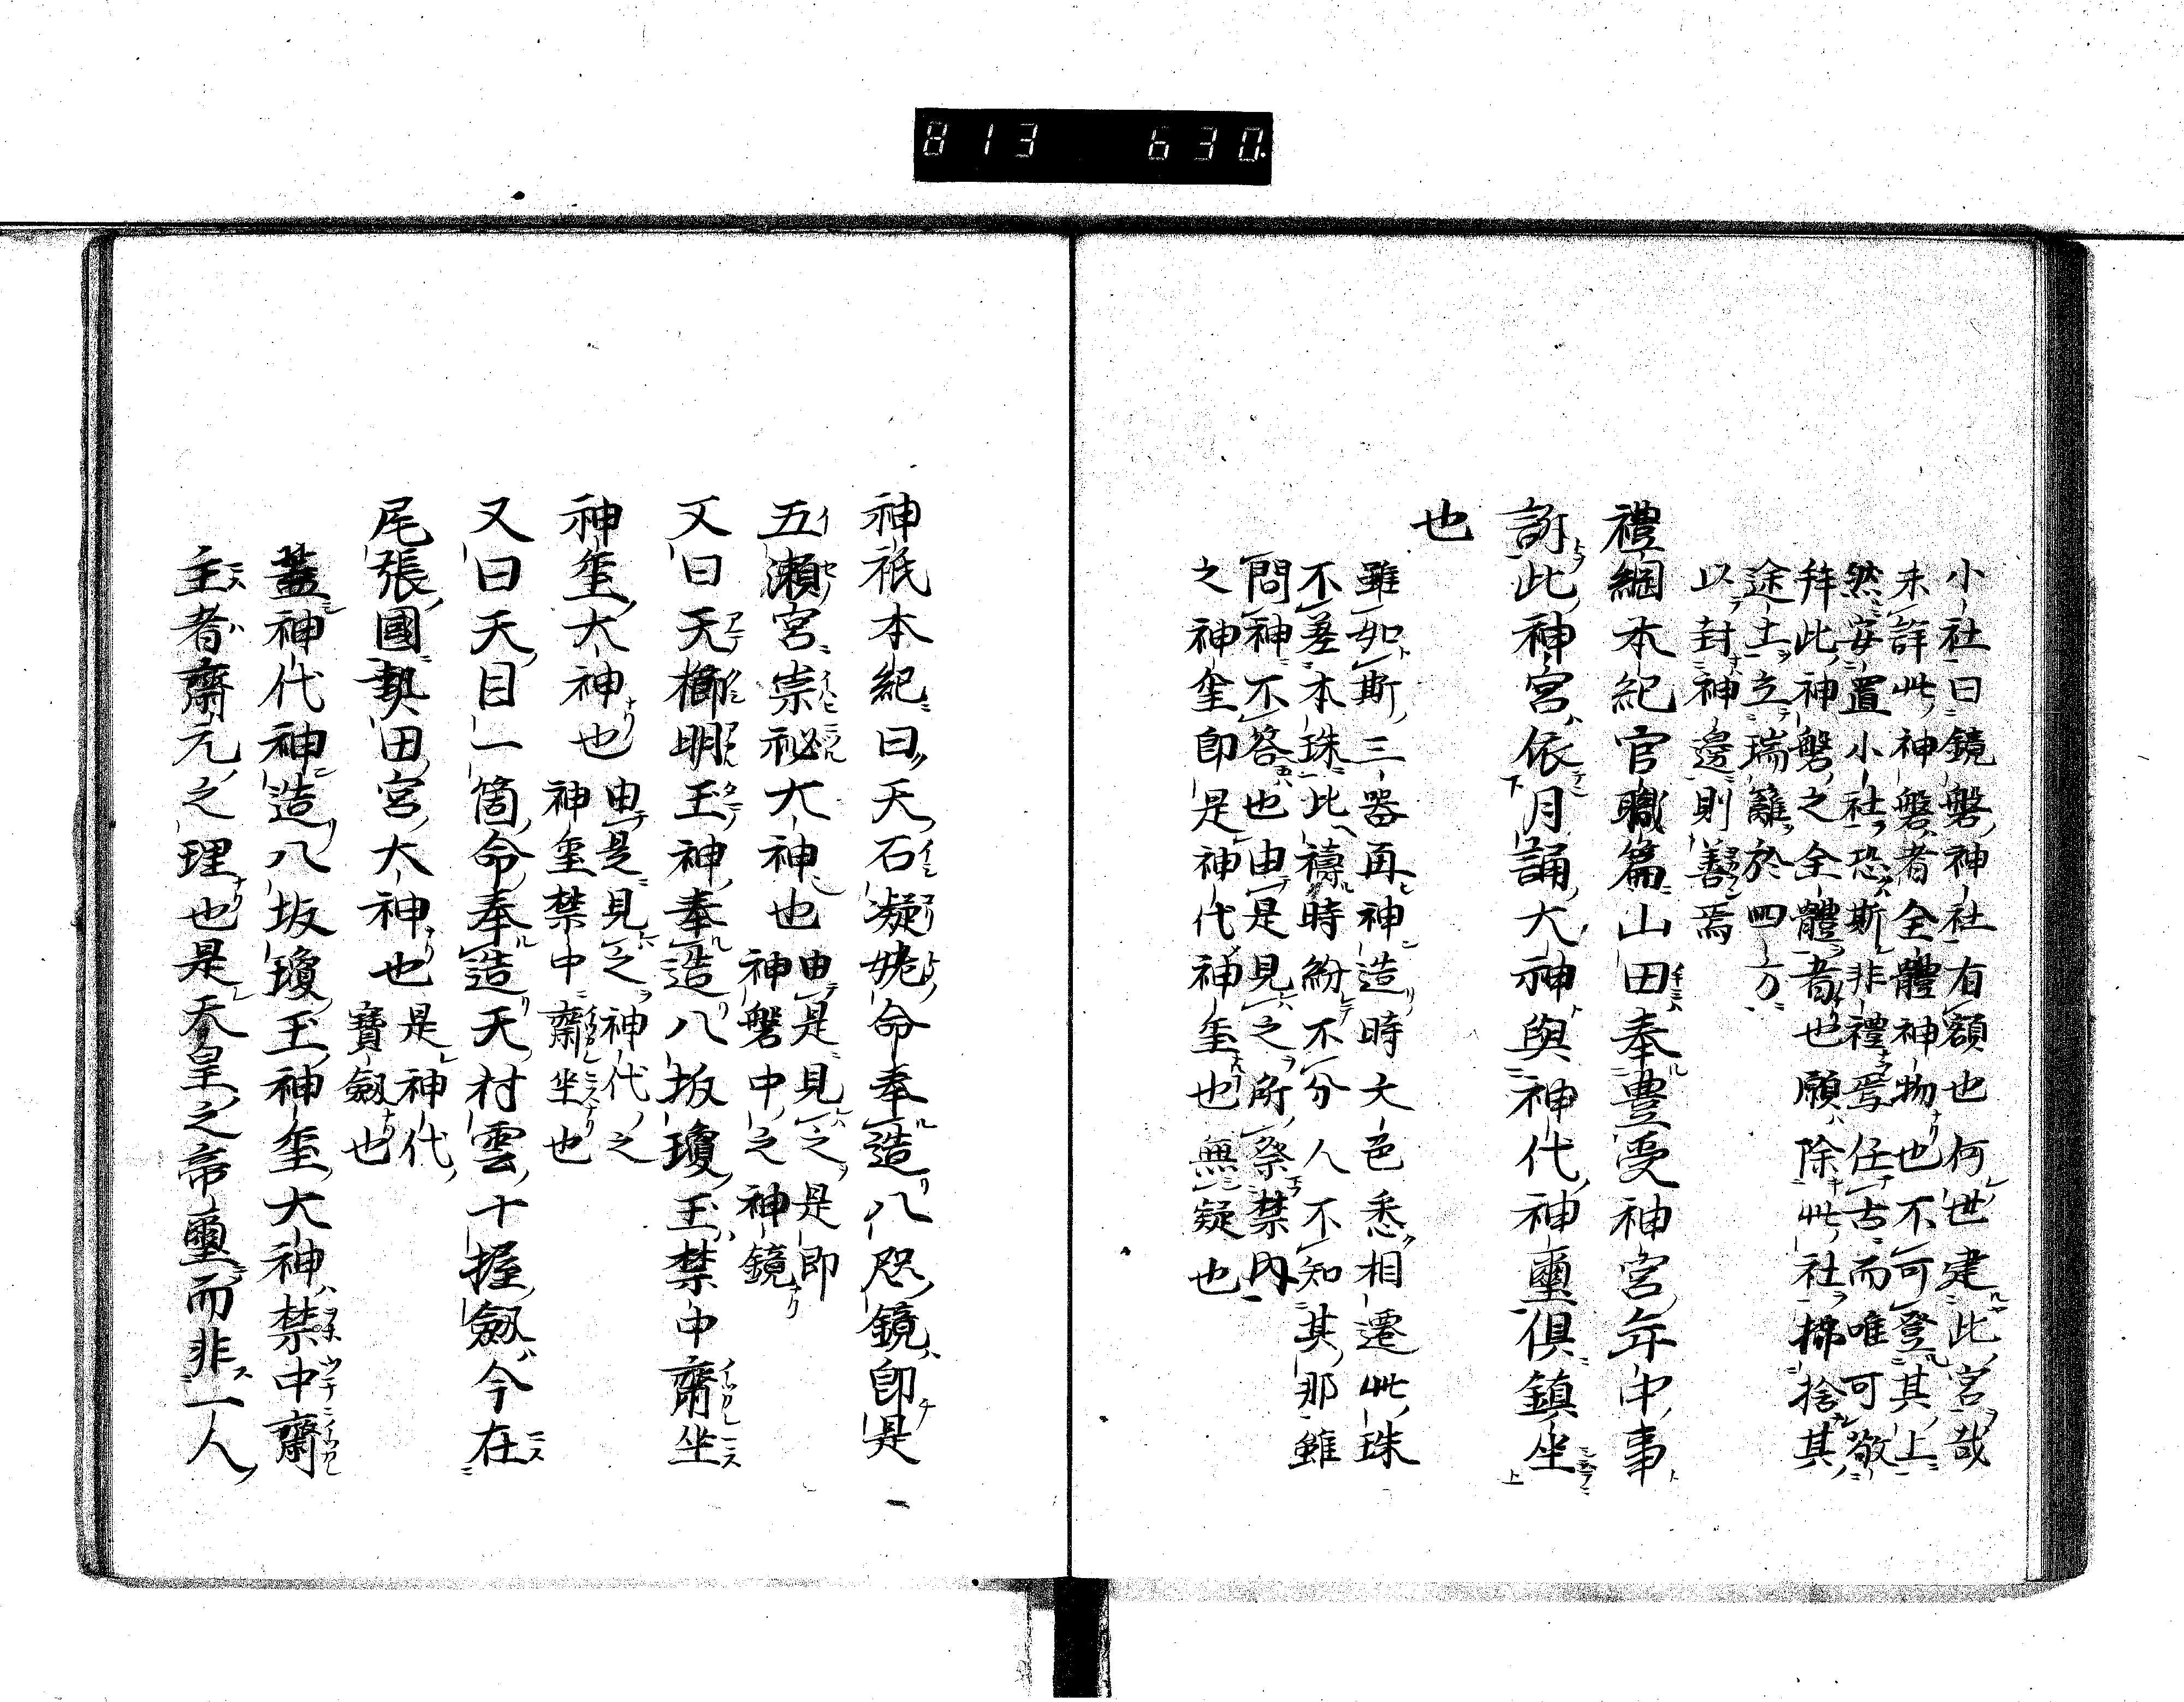 813 630.
小社曰鏡磐神社有額也何世建此宮哉
未詳此神磐者全體神物也不可登其上
然安置小社恐斯非禮焉任古而唯可敬
拜此神磐之全體者也願除此社掃捨其
途土立瑞籬於四方
以封神邊則善焉
禮綱本紀官職篇山田奉豊受神宮年中事
訢此神宮依月誦大神與神代神璽俱鎮坐
也
雖如斯三器再神造時大色悉相遷此珠
不差本珠比禱時紛不分人不知其那雖
問神不答也由是見之所祭禁內
之神坙即是神代神坙也無疑也
神祇本紀曰天石凝姥命奉造八咫鏡即是
五瀨宮崇祕大神也
由是見之是即
神磐中之神鏡
又曰天櫛明玉神奉造八坂瓊玉禁中齋坐
神坙大神也
由是見之神代之
神坙禁中齋坐也
又曰天目一箇命奉造天村雲十握劔今在
尾張國𤍠田宮大神也
是神代
寶劔也
蓋神代神造八坂瓊玉神坙大神禁中齋
主者齋元之理也是天皇之帝璽而非一人